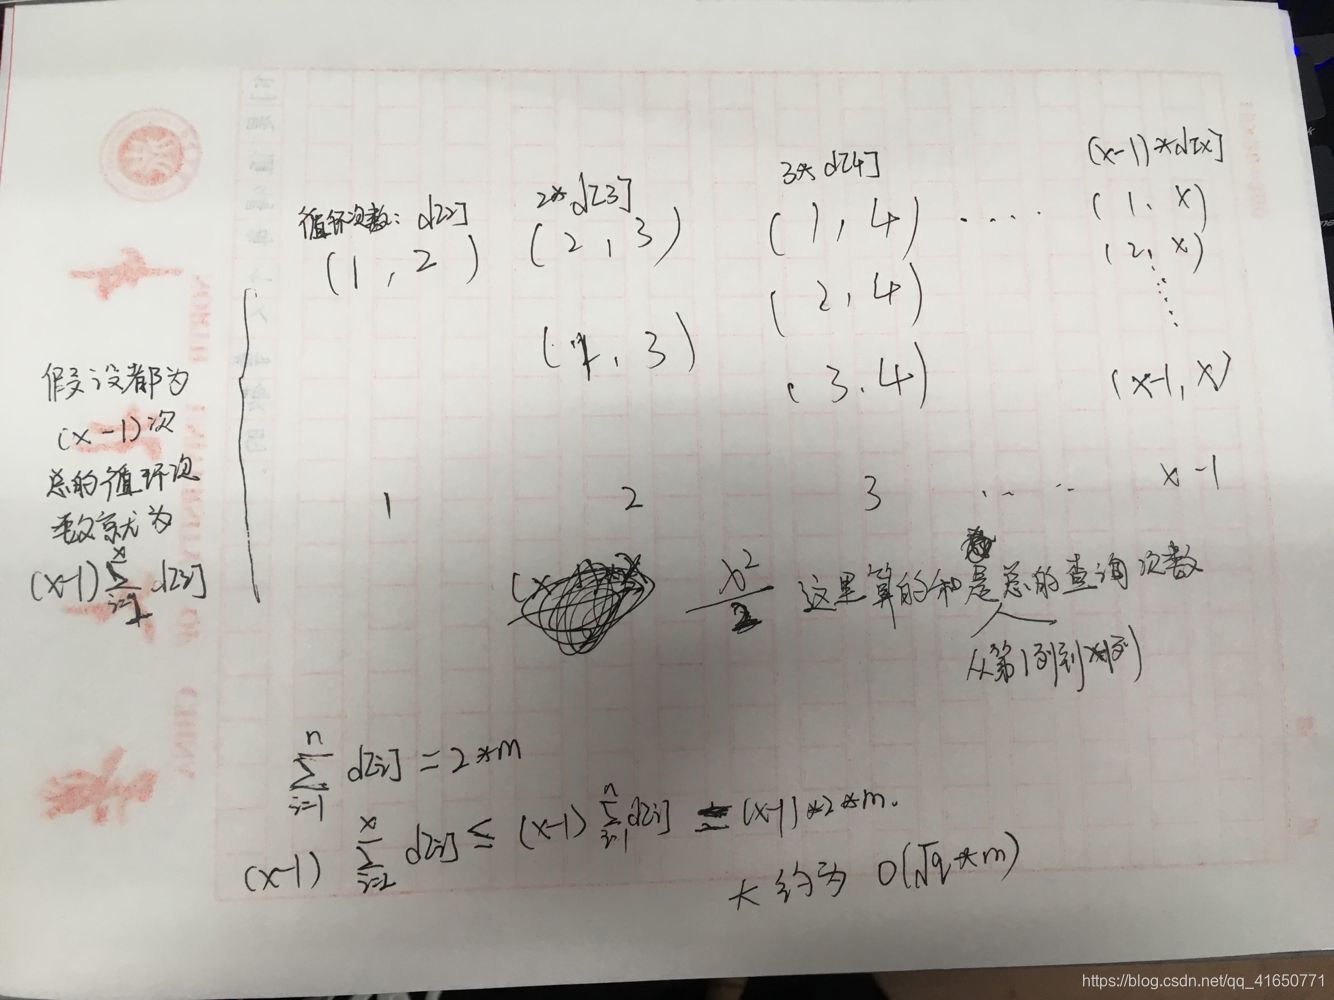 (x-1)*d[x]
3* d[4]
2* d[3]
循环次数: d[2]
(1, 2) (2, 3) (1, 4) .... (1, x)
(2, 4) (2, x)
(1, 3) (3, 4) (x-1, x)
假设都为
(x-1)次
总的循环次
数就为
(x-1) x∑i=1 d[i]
1 2 3 .. .. x-1
x²/2 这里算的和是总的查询次数
从第1列到x-1列
n∑i=1 d[i] = 2*m
(x-1) x∑i=2 d[i] ≤ (x-1) n∑i=1 d[i] = (x-1)*2*m.
大约为 O(√q*m)
NORTH
OF
CHINA
https://blog.csdn.net/qq_41650771